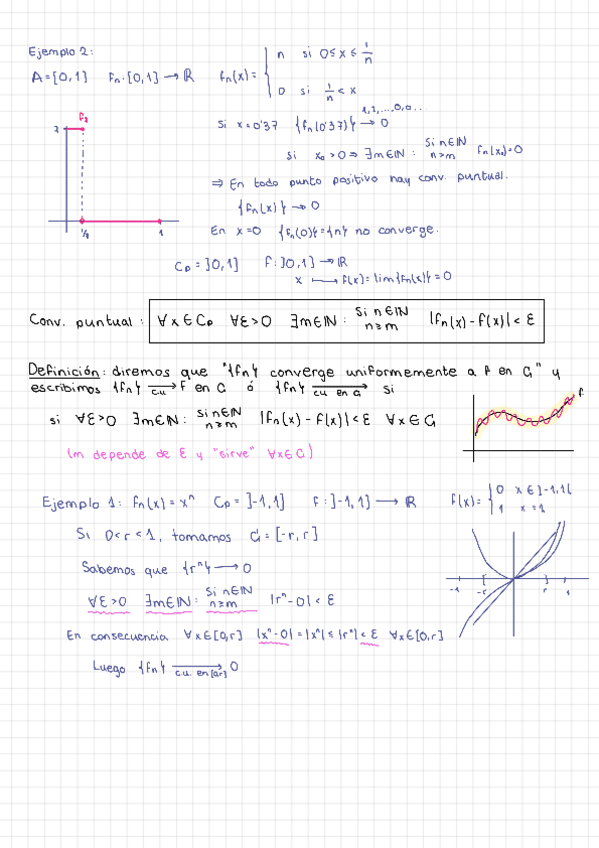 Ejemplo 2:
A = [0,1]   fn: [0,1] → ℝ   fn(x) = { n si 0≤x≤ 1/n
0 si 1/n < x
Si x=0'37   {fn(0'37)} → 0
1,2,...,0,0...
si x₀>0 ⇒ ∃m∈ℕ : si n∈ℕ n≥m fn(x₀)=0
⇒ En todo punto positivo hay conv. puntual.
{fn(x)} → 0
En x=0 {fn(0)}={n} no converge.
Cp = ]0,1]   f: ]0,1] → ℝ
x ⟼ f(x) = lim{fn(x)} = 0
1
Conv. puntual: ∀x∈Cp ∀ε>0 ∃m∈ℕ : si n∈ℕ n≥m |fn(x)-f(x)| < ε
Definición: diremos que "{fn} converge uniformemente a f en C" y
escribimos {fn} →c.u. f en C ó {fn} →c.u. en C si
si ∀ε>0 ∃m∈ℕ : si n∈ℕ n≥m |fn(x)-f(x)| < ε ∀x∈C
f
(m depende de ε y "sirve" ∀x∈C)
Ejemplo 1: fn(x)=xⁿ   Cp = ]-1,1]   f: ]-1,1] → ℝ   f(x) = { 0 x∈]-1,1[
1 x=1
Si 0<r<1, tomamos C = [-r,r]
Sabemos que {rⁿ} → 0
-1 -r r 1
∀ε>0 ∃m∈ℕ : si n∈ℕ n≥m |rⁿ-0| < ε
En consecuencia ∀x∈[0,r] |xⁿ-0| = |xⁿ| ≤ |rⁿ| < ε ∀x∈[0,r]
Luego {fn} →c.u. en [0,r] 0